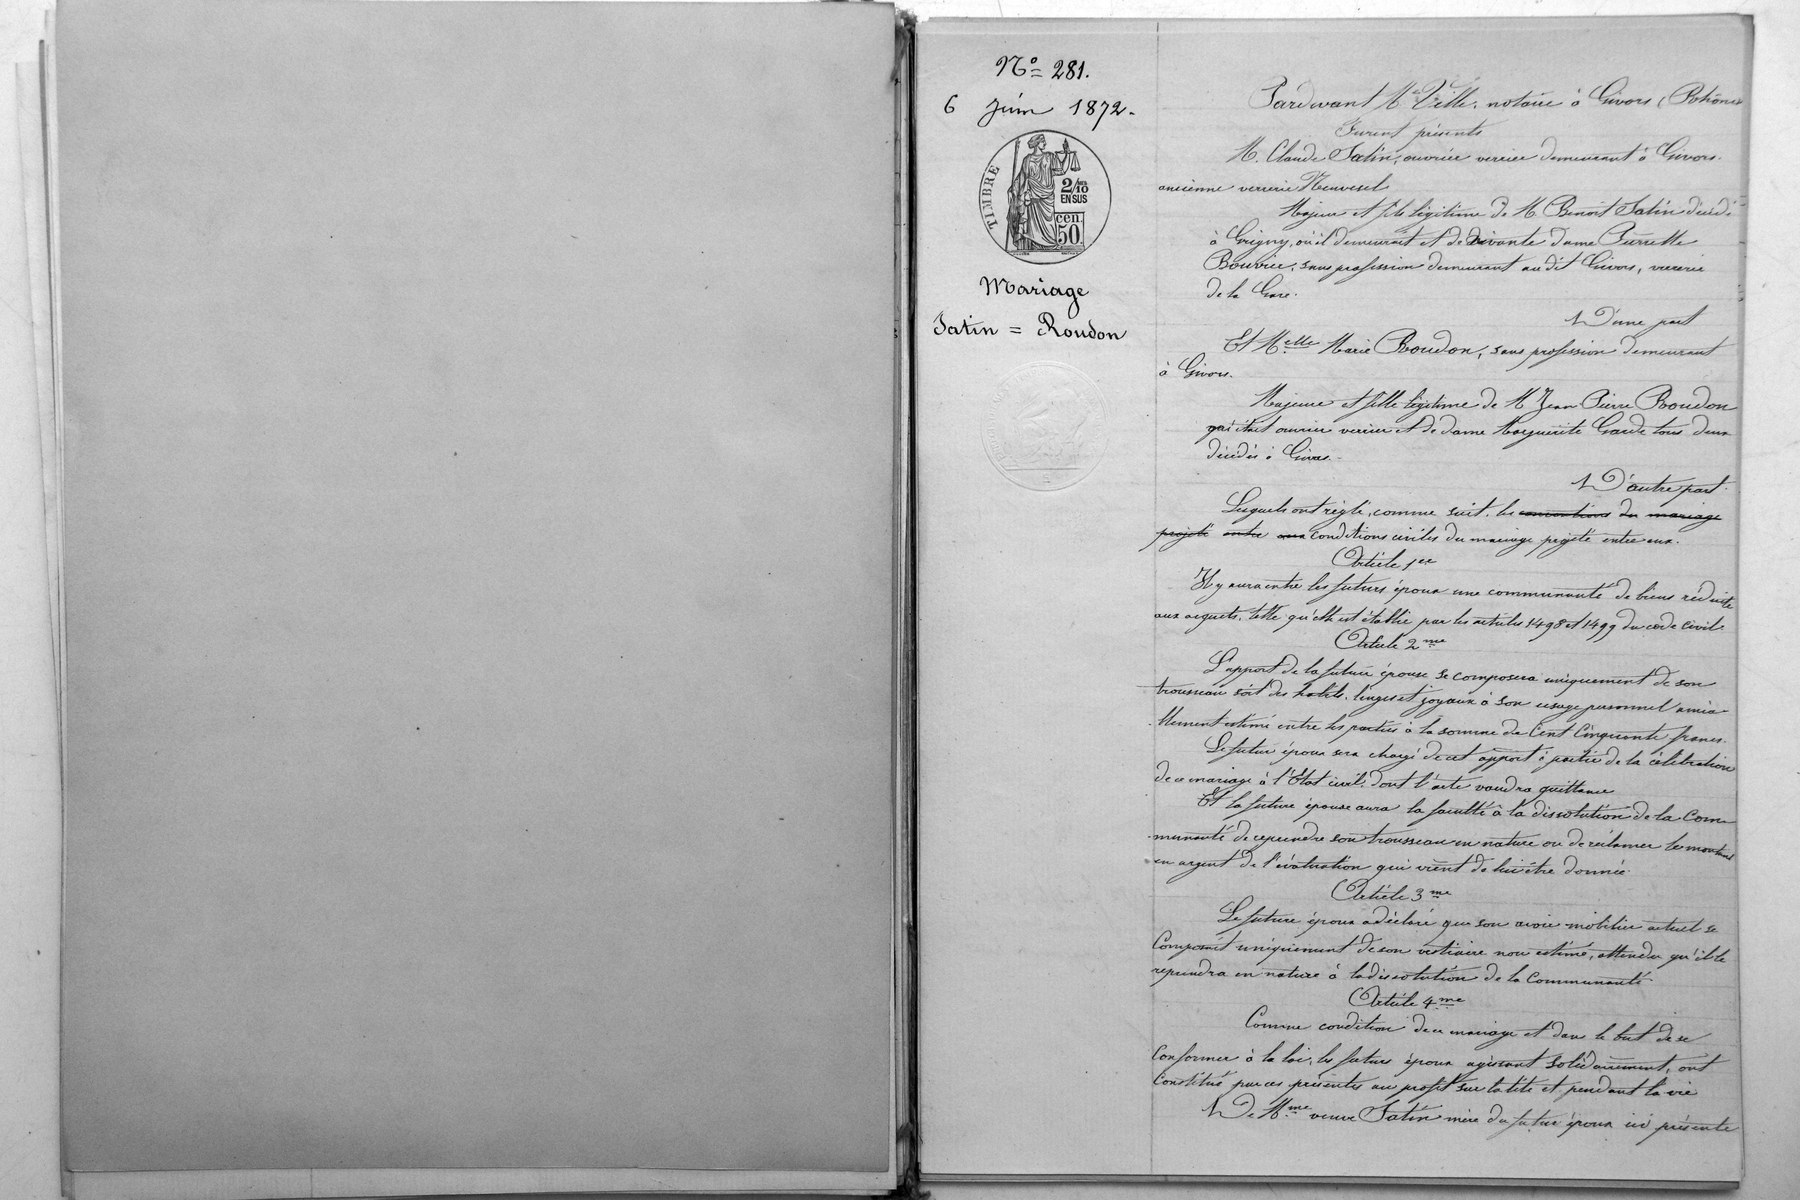 No 281.
6 Juin 1872.
TIMBRE
2/10 EN SUS
cen 50
Mariage
Satin = Roudon
Pardevant Me Ville, notaire à Givors (Rhône
Furent présents
M. Claude Satin, ouvrier verrier demeurant à Givors.
ancienne verrerie Neuvesel
Majeur et fils légitime de M. Benoit Satin décédé
à Grigny, où il demeurait et de vivante dame Pierrette
Bouvier, sans profession demeurant audit Givors, verrerie
de la Gare.
D'une part
Et Melle Marie Roudon, sans profession demeurant
à Givors.
Majeure et fille légitime de M Jean Pierre Roudon
qui était ouvrier verrier et de dame Marguerite Garde tous deux
décédés à Givors.
D'autre part.
Lesquels ont réglé, comme suit, les conventions du mariage
projeté entre eux conditions civiles du mariage projeté entre eux.
Article 1er
Il y aura entre les futurs époux une communauté de biens réduite
aux acquets, telle qu'elle est établie par les articles 1498 et 1499 du code civil.
Article 2me
L'apport de la future épouse se composera uniquement de son
trousseau soit des habits, linges et joyaux à son usage personnel amia-
blement estimé entre les parties à la somme de Cent Cinquante francs.
Le futur époux sera chargé de cet apport à partir de la célébration
de ce mariage à l'Etat civil, dont l'acte vaudra quittance
Et la future épouse aura la faculté à la dissolution de la Com-
munauté de reprendre son trousseau en nature ou de réclamer le montant
en argent de l'évaluation qui vient de lui être donnée.
Article 3me
Le future époux a déclaré que son avoir mobilier actuel se
Composait uniquement de son vestiaire non estimé, attendu qu'il le
reprendra en nature à la dissolution de la Communauté.
Article 4me
Comme condition de ce mariage et dans le but de se
Conformer à la loi, les futurs époux agissant solidairement, ont
Constitué par ces présentes au profit sur la tête et pendant la vie
De Mme veuve Satin mère du futur époux ici présente